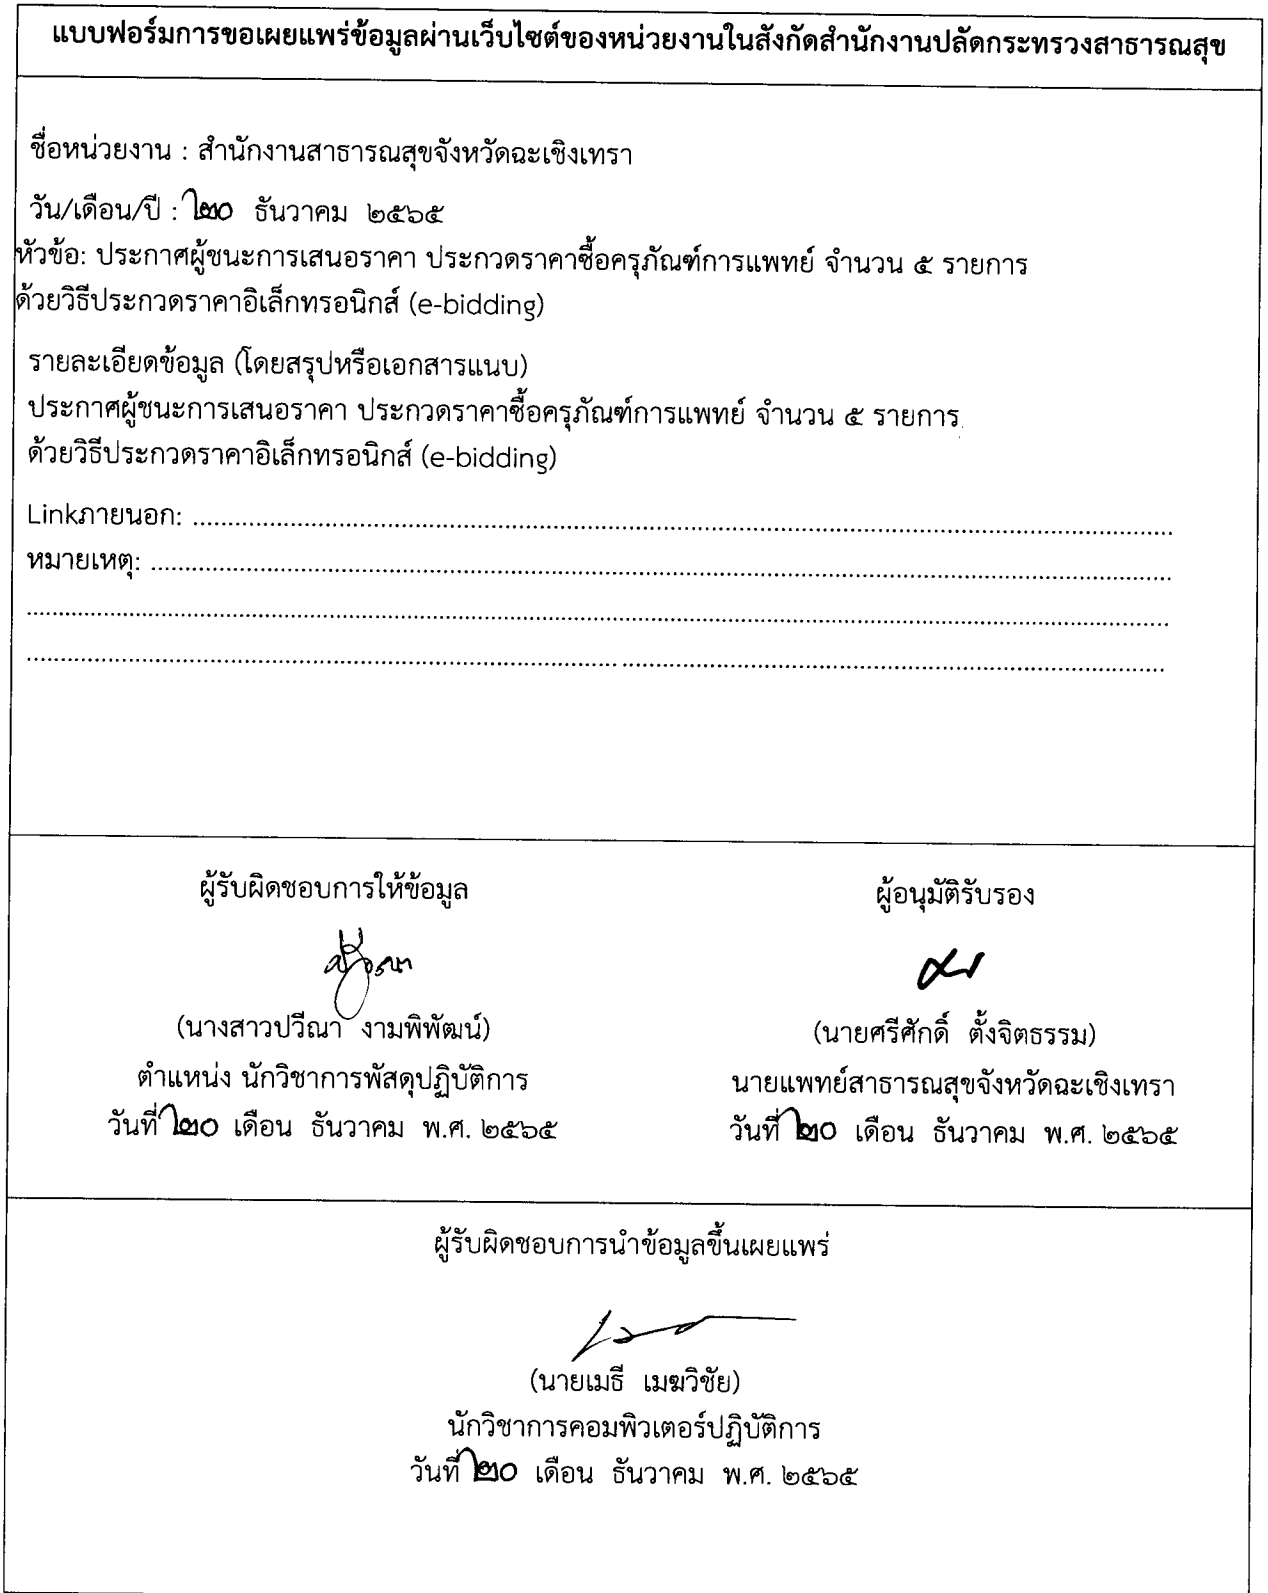 แบบฟอร์มการขอเผยแพร่ข้อมูลผ่านเว็บไซต์ของหน่วยงานในสังกัดสำนักงานปลัดกระทรวงสาธารณสุข
ชื่อหน่วยงาน : สำนักงานสาธารณสุขจังหวัดฉะเชิงเทรา
วัน/เดือน/ปี : ๒๐ ธันวาคม ๒๕๖๕
หัวข้อ: ประกาศผู้ชนะการเสนอราคา ประกวดราคาซื้อครุภัณฑ์การแพทย์ จำนวน ๕ รายการ
ด้วยวิธีประกวดราคาอิเล็กทรอนิกส์ (e-bidding)
รายละเอียดข้อมูล (โดยสรุปหรือเอกสารแนบ)
ประกาศผู้ชนะการเสนอราคา ประกวดราคาซื้อครุภัณฑ์การแพทย์ จำนวน ๕ รายการ
ด้วยวิธีประกวดราคาอิเล็กทรอนิกส์ (e-bidding)
Linkภายนอก: ........................................................................................................................
หมายเหตุ: ........................................................................................................................
........................................................................................................................
........................................................................................................................
ผู้รับผิดชอบการให้ข้อมูล
(นางสาวปวีณา งามพิพัฒน์)
ตำแหน่ง นักวิชาการพัสดุปฏิบัติการ
วันที่ ๒๐ เดือน ธันวาคม พ.ศ. ๒๕๖๕
ผู้อนุมัติรับรอง
(นายศรีศักดิ์ ตั้งจิตธรรม)
นายแพทย์สาธารณสุขจังหวัดฉะเชิงเทรา
วันที่ ๒๐ เดือน ธันวาคม พ.ศ. ๒๕๖๕
ผู้รับผิดชอบการนำข้อมูลขึ้นเผยแพร่
(นายเมธี เมฆวิชัย)
นักวิชาการคอมพิวเตอร์ปฏิบัติการ
วันที่ ๒๐ เดือน ธันวาคม พ.ศ. ๒๕๖๕